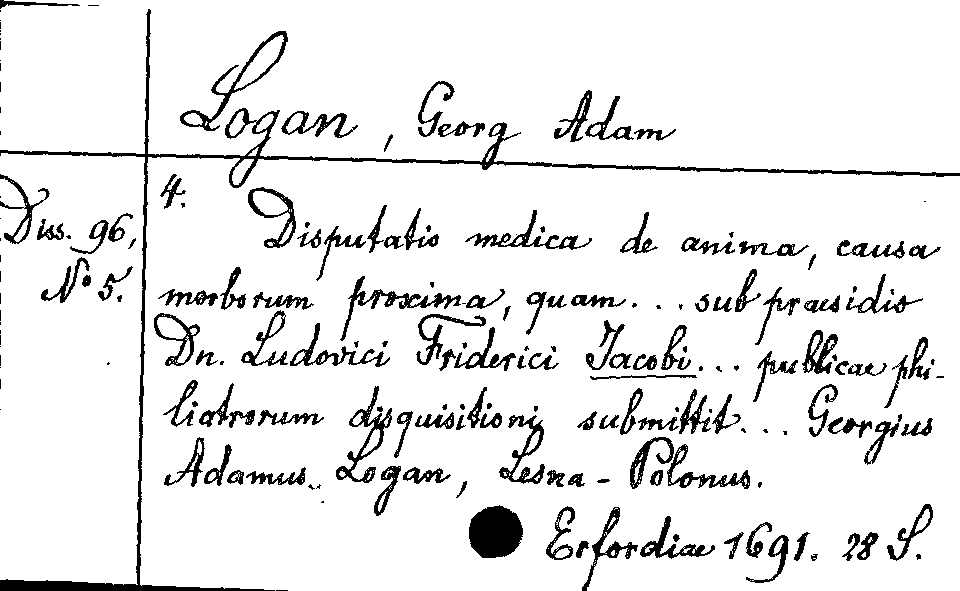 Logan, Georg Adam
4.
Diss. 96,
No 5.
Disputatio medica de anima, causa
morborum proxima, quam... sub praesidio
Dn. Ludovici Friderici Jacobi... publicae phi-
liatrorum disquisitioni submittit... Georgius
Adamus.. Logan, Lesna-Polonus.
Erfordiae 1691. 28 S.